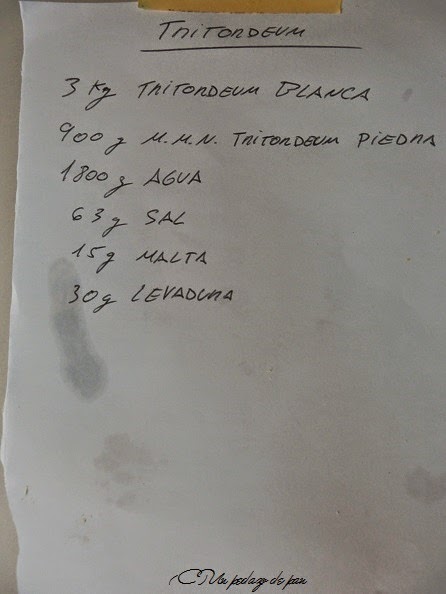 TRITORDEUM
3 Kg TRITORDEUM BLANCA
900 g M.M.N. TRITORDEUM PIEDRA
1800 g AGUA
63 g SAL
15 g MALTA
30 g LEVADURA
Un pedazo de pan